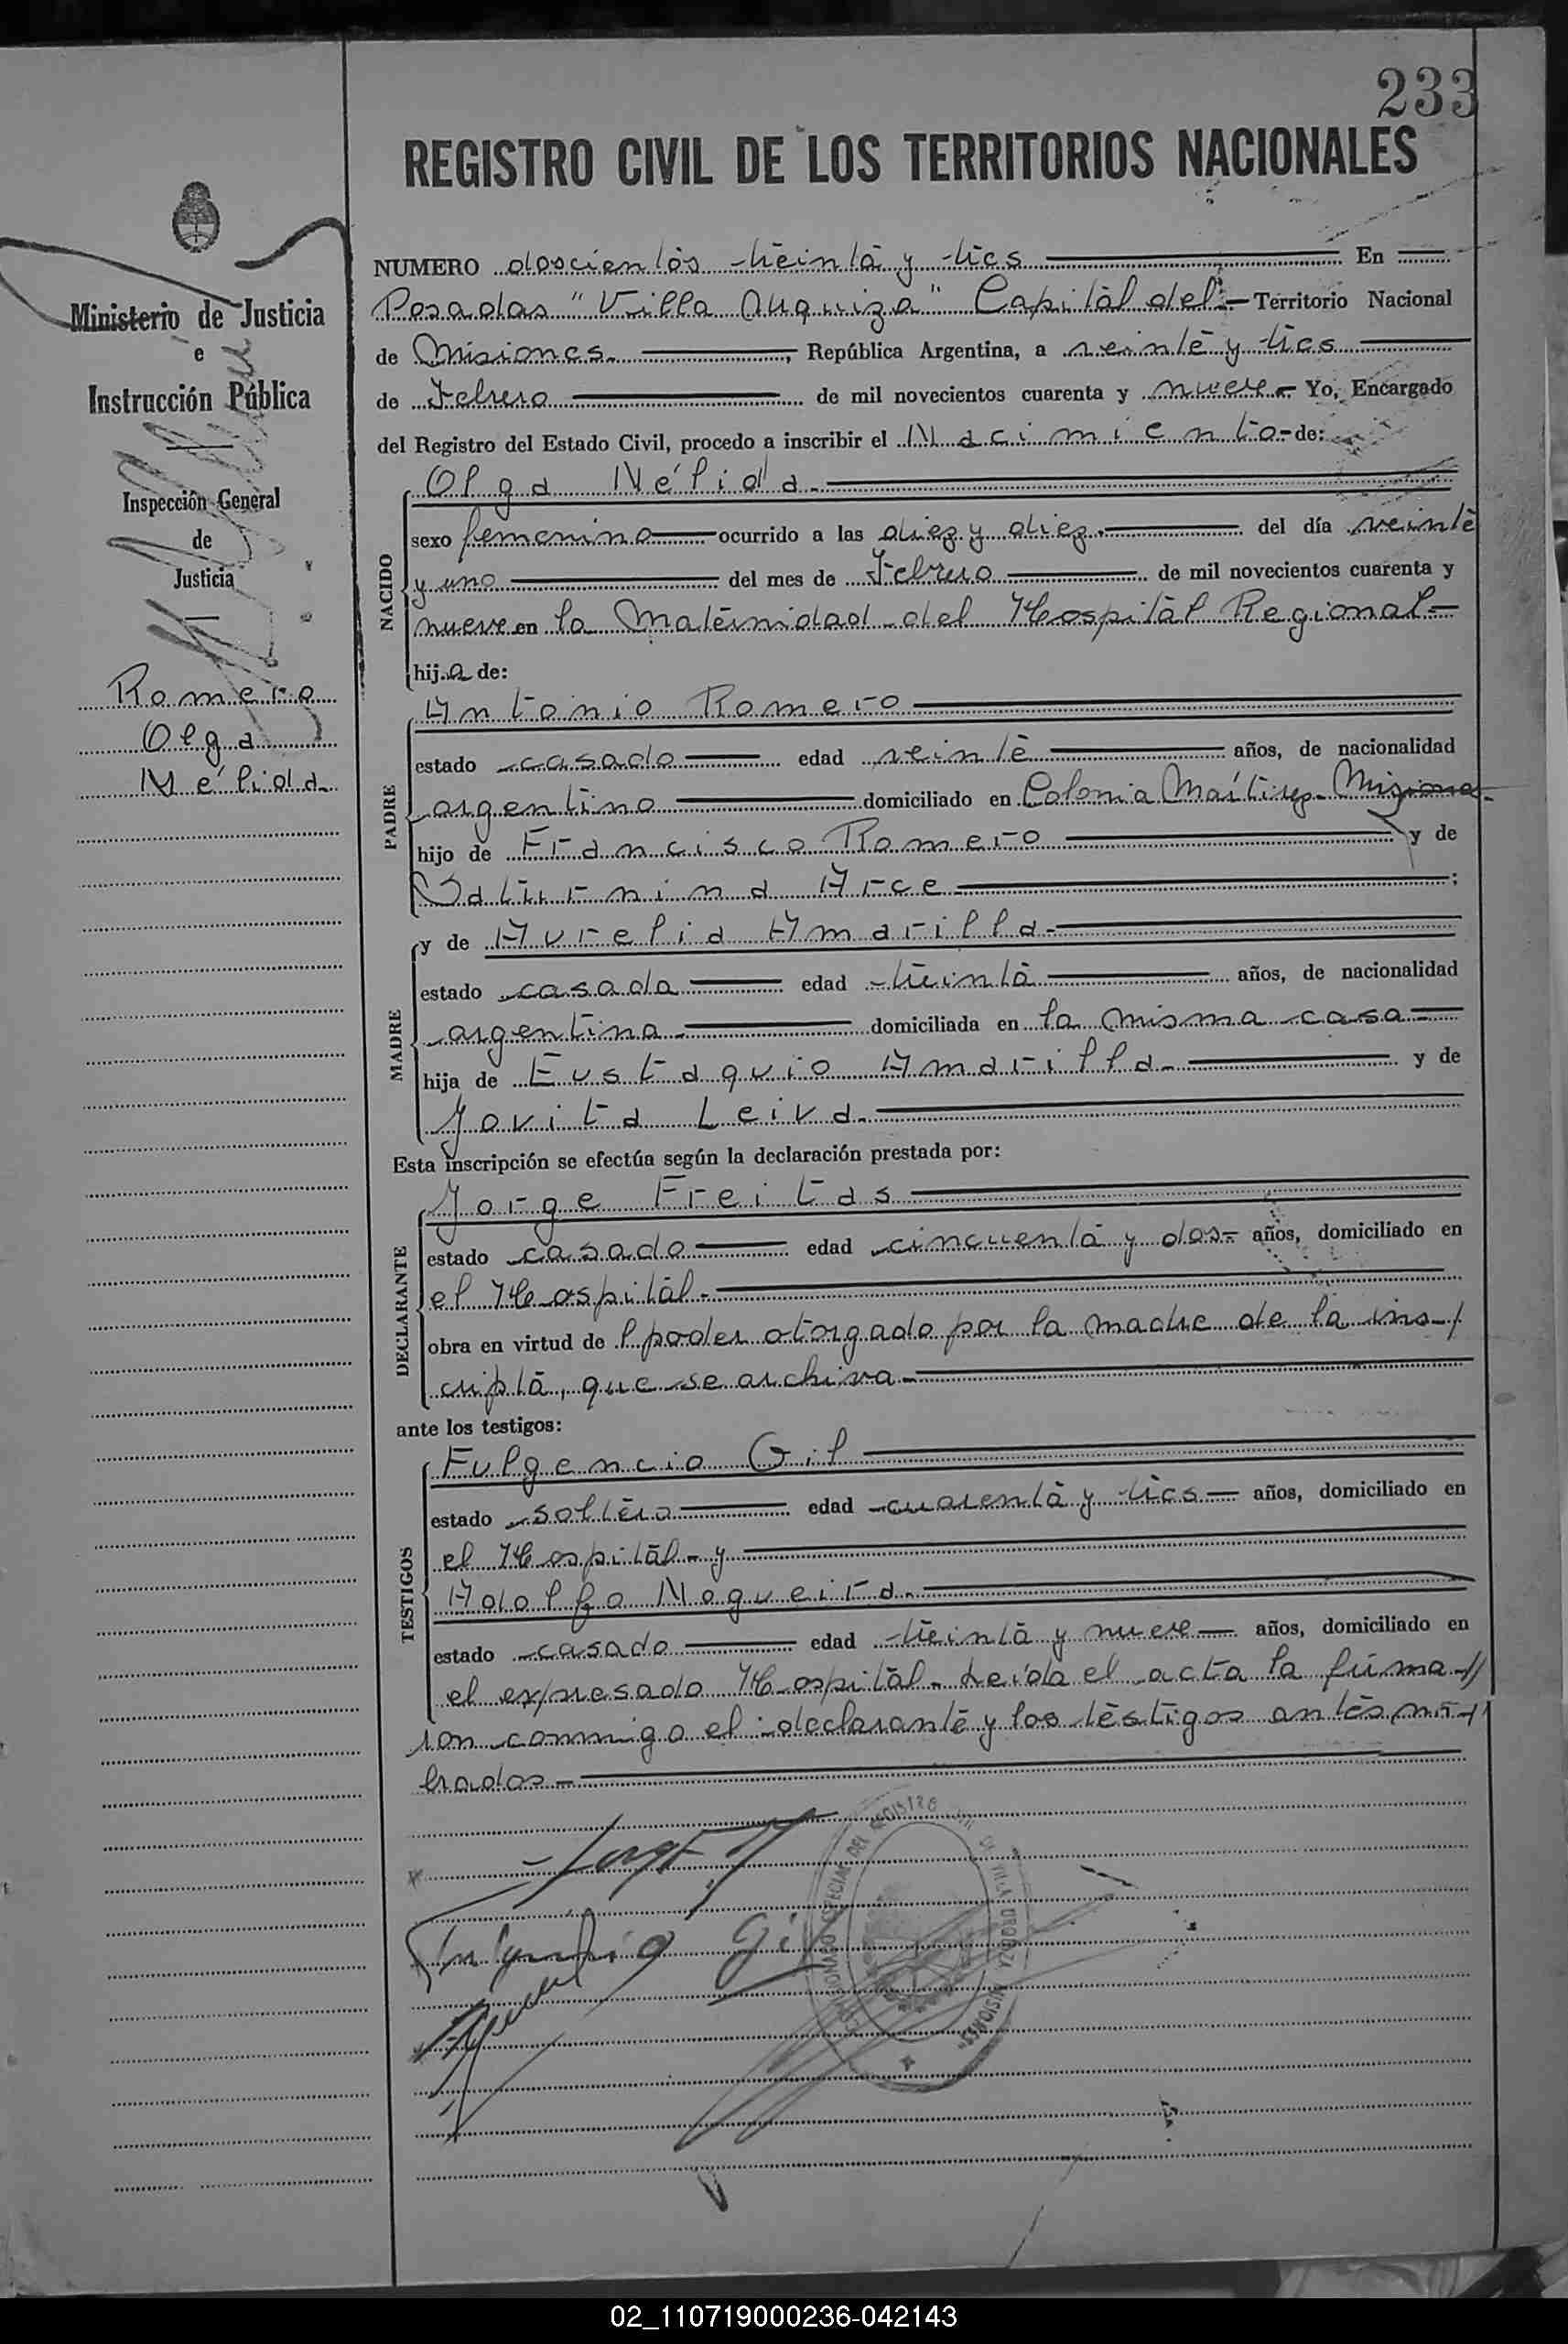 233
REGISTRO CIVIL DE LOS TERRITORIOS NACIONALES
Ministerio de Justicia
e
Instrucción Pública
Inspección General
de
Justicia
Romero
Olga
Nélida
NUMERO doscientos treinta y tres En
Posadas "Villa Urquiza" Capital del Territorio Nacional
de Misiones, República Argentina, a veinte y tres
de Febrero de mil novecientos cuarenta y nueve Yo, Encargado
del Registro del Estado Civil, procedo a inscribir el Nacimiento de:
NACIDO
Olga Nélida
sexo femenino ocurrido a las diez y diez del día veinte
y uno del mes de Febrero de mil novecientos cuarenta y
nueve en la Maternidad del Hospital Regional
hija de:
PADRE
Antonio Romero
estado casado edad veinte años, de nacionalidad
argentino domiciliado en Colonia Mártires Misiones
hijo de Francisco Romero y de
Saturnina Arce;
MADRE
y de Aurelia Amarilla
estado casada edad treinta años, de nacionalidad
argentina domiciliada en la misma casa
hija de Eustaquio Amarilla y de
Jovita Leiva
Esta inscripción se efectúa según la declaración prestada por:
DECLARANTE
Jorge Freitas
estado casado edad cincuenta y dos años, domiciliado en
el Hospital
obra en virtud del poder otorgado por la madre de la ins-/
cripta, que se archiva
ante los testigos:
TESTIGOS
Fulgencio Gil
estado soltero edad cuarenta y tres años, domiciliado en
el Hospital y
Adolfo Nogueira
estado casado edad treinta y nueve años, domiciliado en
el expresado Hospital. Leída el acta la firma-//
ron conmigo el declarante y los testigos antes
brados
Gil
02_110719000236-042143